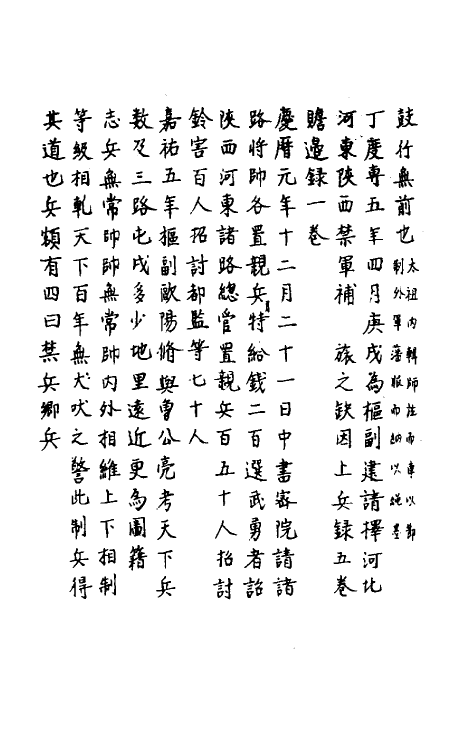 鼓行無前也太祖内輯師法而車以節
制外軍藩服而納以繩墨
丁度專五年四月庚戌為樞副建請擇河北
河東陝西禁軍補 族之缺因上兵録五卷
贍邉録一卷
慶曆元年十二月二十一日中書密院請諸
路將帥各置親兵特給錢二百選武勇者詔
陝西河東諸路總管置親兵百五十人招討
鈐害百人招討都監等七十人
嘉祐五年樞副歐陽脩與曾公亮考天下兵
数及三路屯戍多少地里遠近更為圖籍
志兵無常帥帥無常帥内外相維上下相制
等級相軋天下百年無犬吠之警此制兵得
其道也兵額有四曰禁兵鄉兵